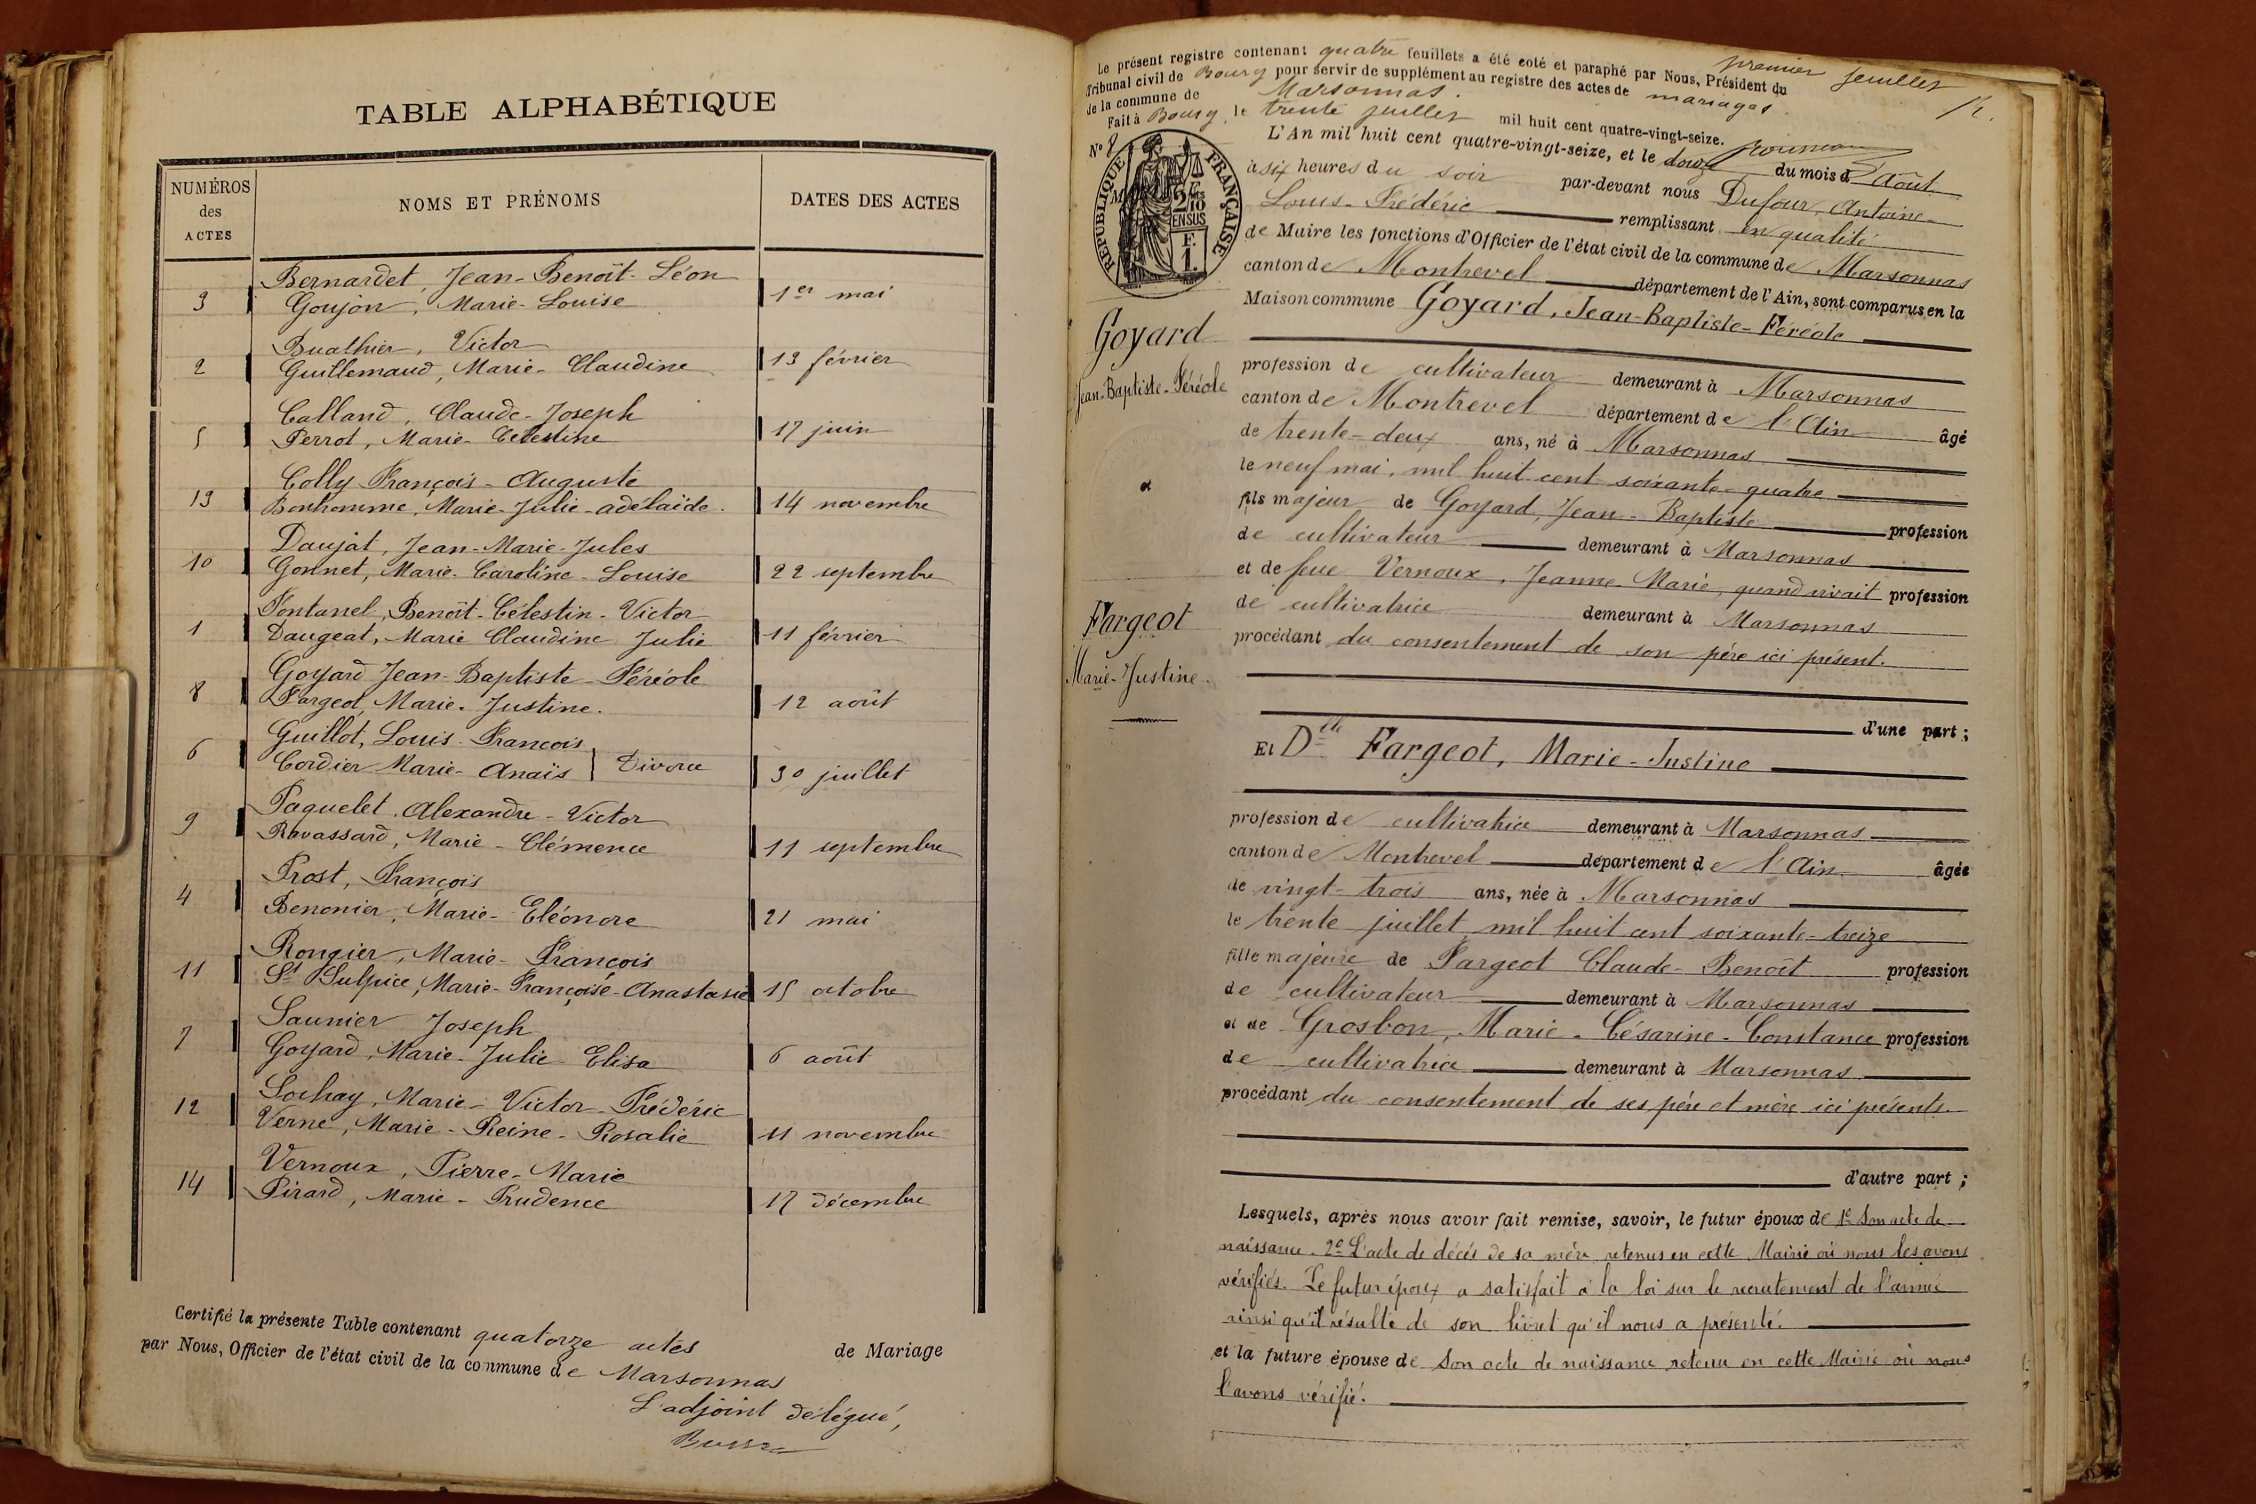 TABLE ALPHABÉTIQUE
NUMÉROS des ACTES
NOMS ET PRÉNOMS
DATES DES ACTES
Bernardet, Jean-Benoît-Léon
3 Goujon, Marie-Louise 1er mai
Buathier, Victor
2 Guillemaud, Marie-Claudine 13 février
Calland, Claude-Joseph
5 Perrot, Marie-Célestine 17 juin
Colly François-Auguste
13 Bonhomme, Marie-Julie-adélaïde. 14 novembre
Daujat, Jean-Marie-Jules
10 Gonnet, Marie-Caroline-Louise 22 septembre
Fontanel, Benoît-Célestin-Victor
1 Daugeat, Marie Claudine Julie 11 février
Goyard Jean-Baptiste-Féréole
8 Fargeot, Marie-Justine. 12 août
Guillot, Louis-François
6 Cordier Marie-Anaïs } Divorce 30 juillet
Paquelet, Alexandre-Victor
9 Ravassard, Marie-Clémence 11 septembre
Prost, François
4 Benonier, Marie-Eléonore 21 mai
Rongier, Marie-François
11 St Sulpice, Marie-Françoise-Anastasie 15 octobre
Saunier Joseph
7 Goyard, Marie-Julie-Elisa 6 août
Sochay, Marie-Victor-Frédéric
12 Verne, Marie-Reine-Rosalie 11 novembre
Vernoux, Pierre-Marie
14 Pirard, Marie-Prudence 17 décembre
Certifié la présente Table contenant quatorze actes de Mariage
par Nous, Officier de l'état civil de la commune de Marsonnas
L'adjoint délégué,
premier feuillet
Le présent registre contenant quatre feuillets a été coté et paraphé par Nous, Président du
Tribunal civil de Bourg pour servir de supplément au registre des actes de mariages
de la commune de Marsonnas.
Fait à Bourg, le trente juillet mil huit cent quatre-vingt-seize.
No 8
RÉPUBLIQUE FRANÇAISE
2/10 EN SUS
F. 1.
L'An mil huit cent quatre-vingt-seize, et le douze du mois d'Août
à six heures du soir par-devant nous Dufour, Antoine-
Louis-Frédéric remplissant en qualité
de Maire les fonctions d'Officier de l'état civil de la commune de Marsonnas
canton de Montrevel département de l'Ain, sont comparus en la
Maison commune Goyard, Jean-Baptiste-Féréole
Goyard
Jean-Baptiste-Féréole
et
Fargeot
Marie-Justine.
profession de cultivateur demeurant à Marsonnas
canton de Montrevel département de l'Ain âgé
de trente-deux ans, né à Marsonnas
le neuf mai, mil huit cent soixante-quatre
fils majeur de Goyard, Jean-Baptiste profession
de cultivateur demeurant à Marsonnas
et de feue Vernoux, Jeanne Marie, quand vivait profession
de cultivatrice demeurant à Marsonnas
procédant du consentement de son père ici présent.
d'une part ;
Et Dlle Fargeot, Marie-Justine
profession de cultivatrice demeurant à Marsonnas
canton de Montrevel département de l'Ain. âgée
de vingt-trois ans, née à Marsonnas
le trente juillet mil huit cent soixante-treize
fille majeure de Fargeot Claude-Benoît profession
de cultivateur demeurant à Marsonnas
et de Grosbon, Marie-Césarine-Constance profession
de cultivatrice demeurant à Marsonnas
procédant du consentement de ses père et mère ici présents.
d'autre part ;
Lesquels, après nous avoir fait remise, savoir, le futur époux de 1º Son acte de
naissance. 2º L'acte de décès de sa mère retenus en cette Mairie où nous les avons
vérifiés. Le futur époux a satisfait à la loi sur le recrutement de l'armée
ainsi qu'il résulte de son livret qu'il nous a présenté.
et la future épouse de Son acte de naissance retenu en cette Mairie où nous
l'avons vérifié.